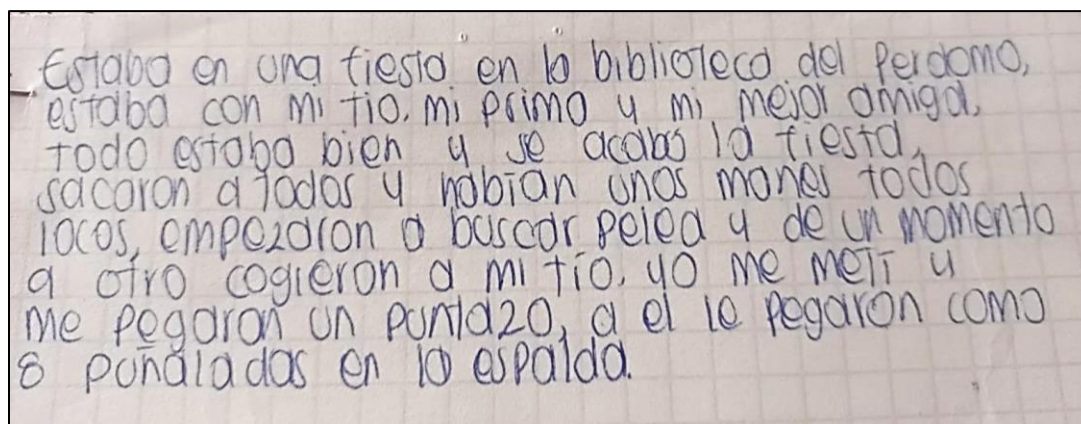 Estaba en una fiesta en la biblioteca del Perdomo,
estaba con mi tio, mi primo y mi mejor amiga,
todo estaba bien y se acabo la fiesta,
sacaron a todos y habian unos manes todos
locos, empezaron a buscar pelea y de un momento
a otro cogieron a mi tío, yo me metí y
me pegaron un puntazo, a el le pegaron como
8 puñaladas en la espalda.